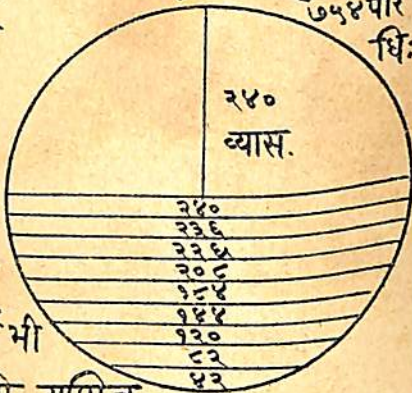 ७५४ परि
धिः
२४०
व्यास.
२४०
२३६
२२५
२०८
१८४
१४४
१२०
८२
४२
भी